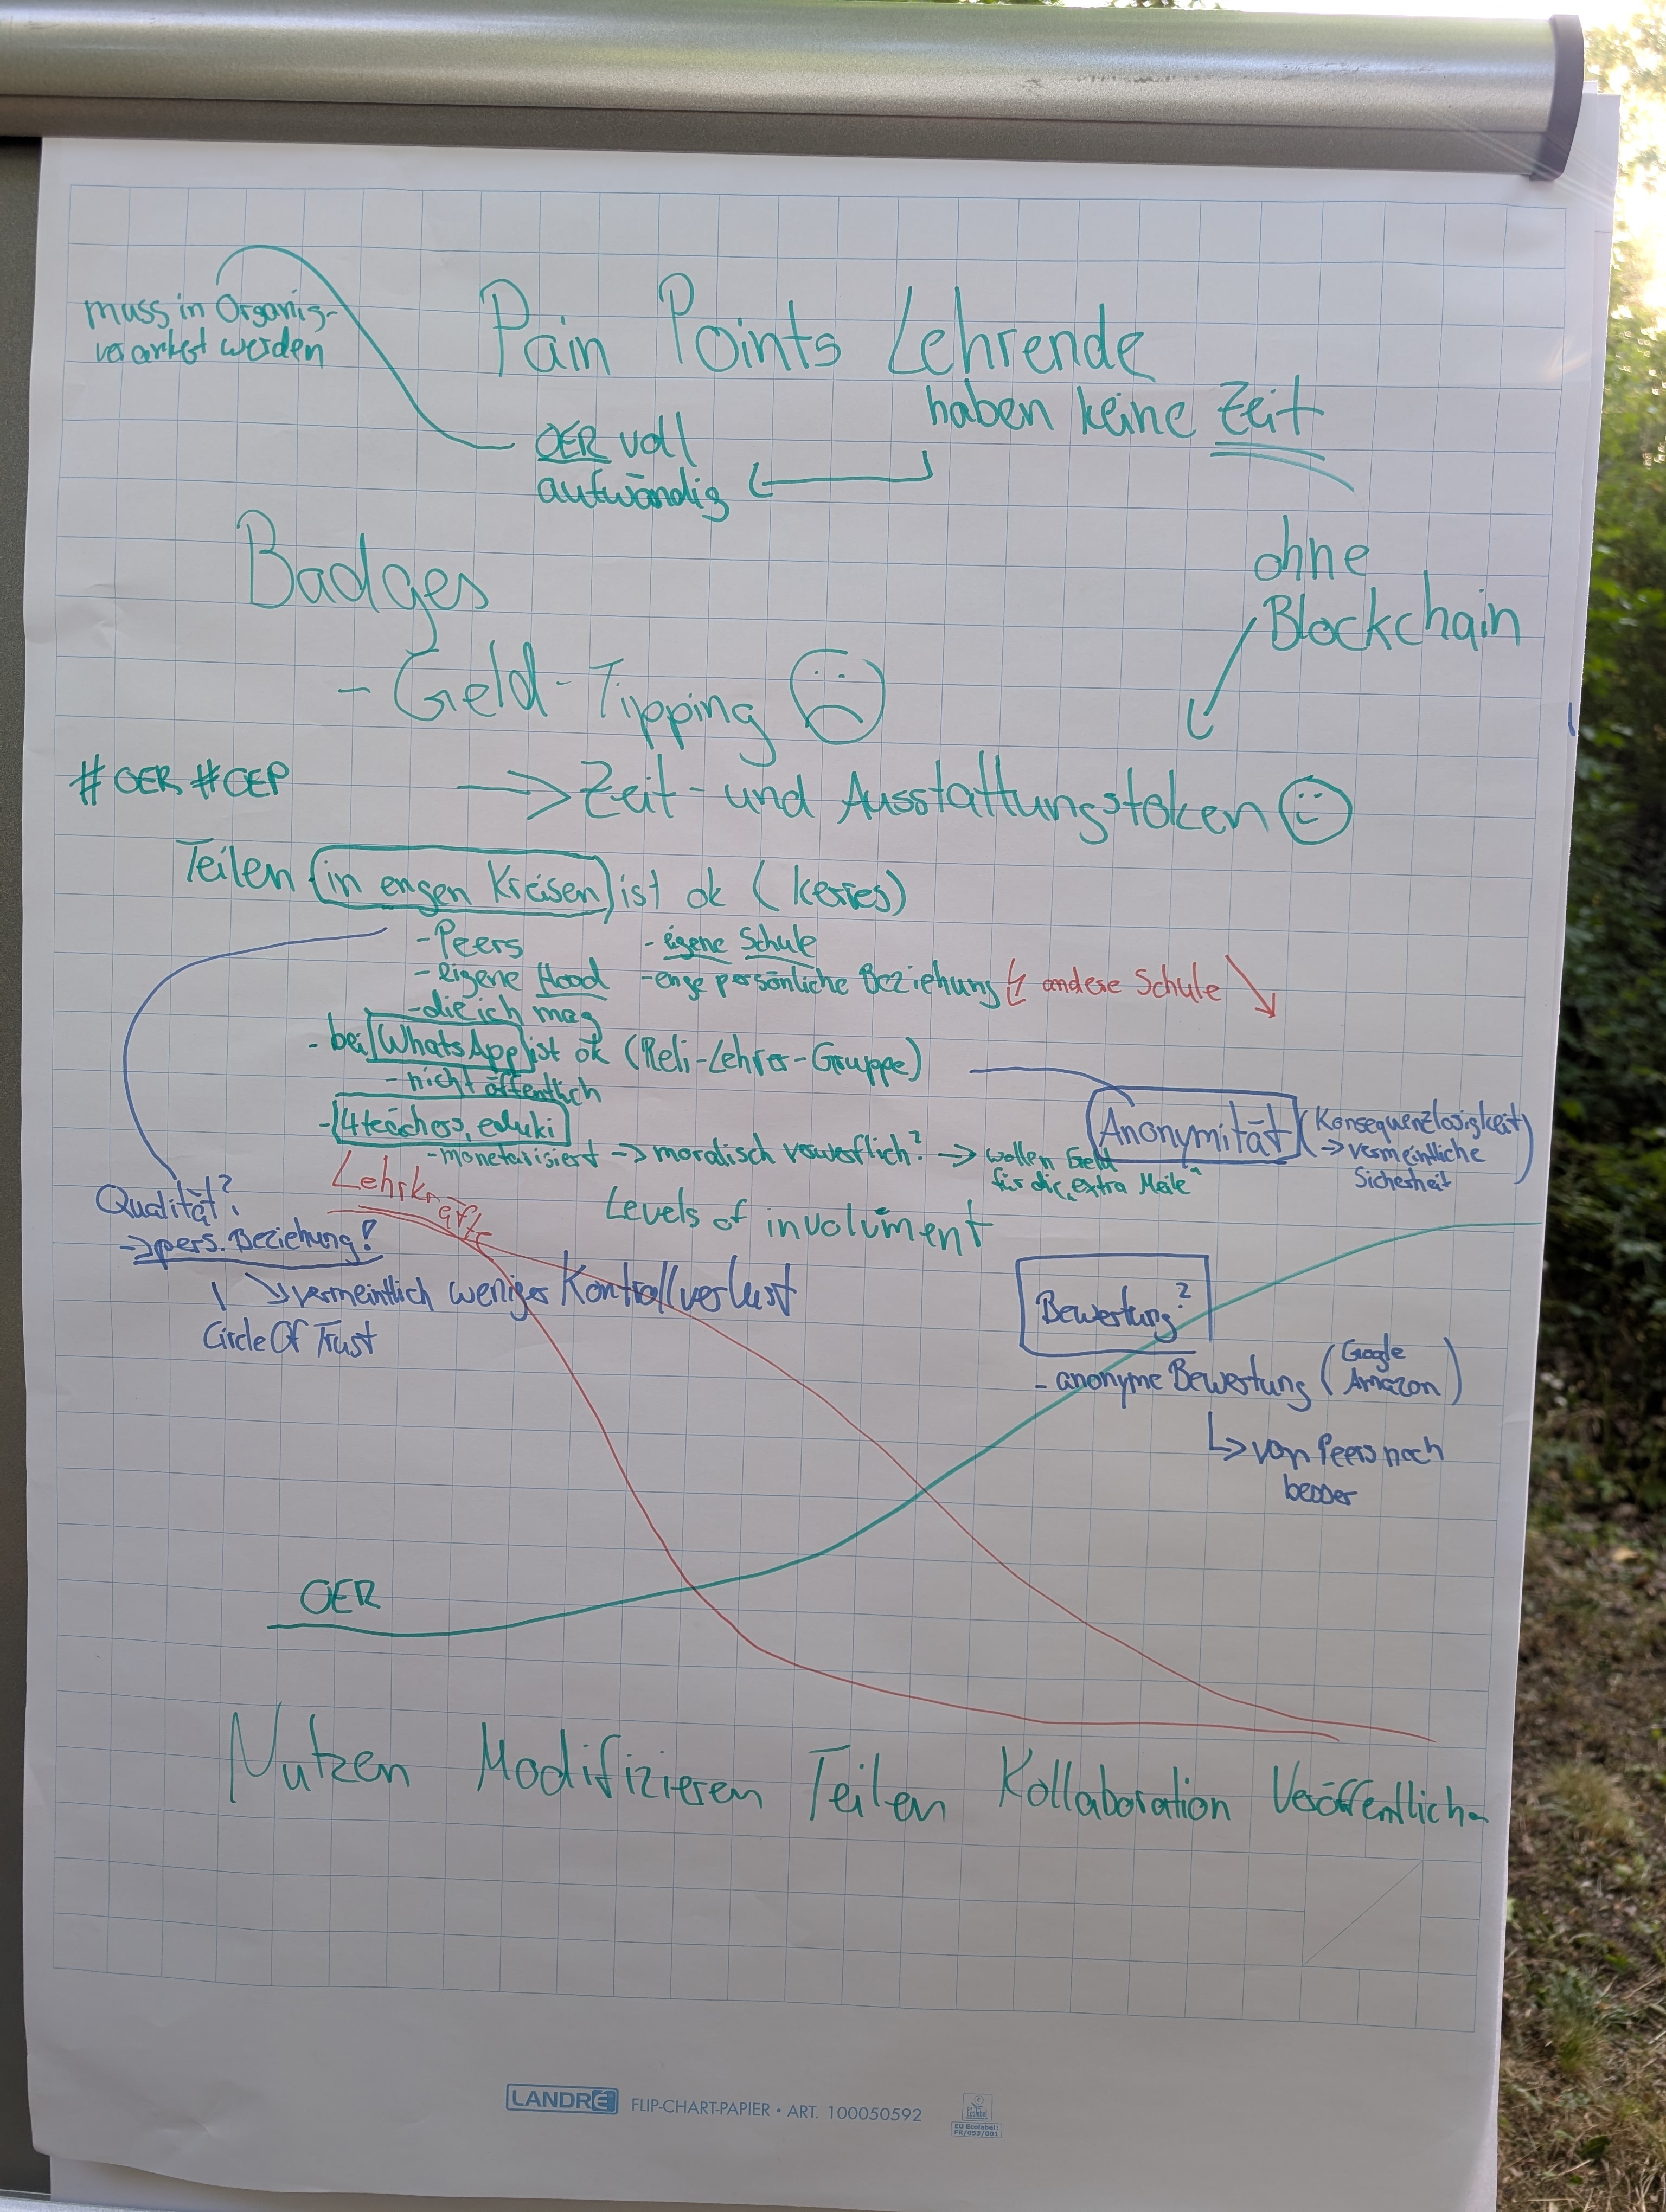 muss in Organis-
verankert werden
Pain Points Lehrende
haben keine Zeit
OER voll
aufwändig
ohne
Blockchain
Badges
- Geld-Tipping
#OER #OEP
→ Zeit- und Ausstattungstoken
Teilen (in engen Kreisen) ist ok (Kerres)
- Peers
- eigene Schule
- eigene Hood
- enge persönliche Beziehung
andere Schule
- die ich mag
- bei WhatsApp ist ok (Reli-Lehrer-Gruppe)
- nicht öffentlich
- 4teachers, eduki
- monetarisiert → moralisch verwerflich? → wollen Geld
für die „extra Meile"
Anonymität (Konsequenzlosigkeit
→ vermeintliche
Sicherheit)
Lehrkräfte
Qualität?
→ pers. Beziehung!
Levels of involvment
↘ vermeintlich weniger Kontrollverlust
Circle Of Trust
Bewertung?
- anonyme Bewertung (Google
Amazon)
↳ von Peers noch
besser
OER
Nutzen Modifizieren Teilen Kollaboration Veröffentlichen
LANDRÉ FLIP-CHART-PAPIER • ART. 100050592
EU Ecolabel:
FR/053/001